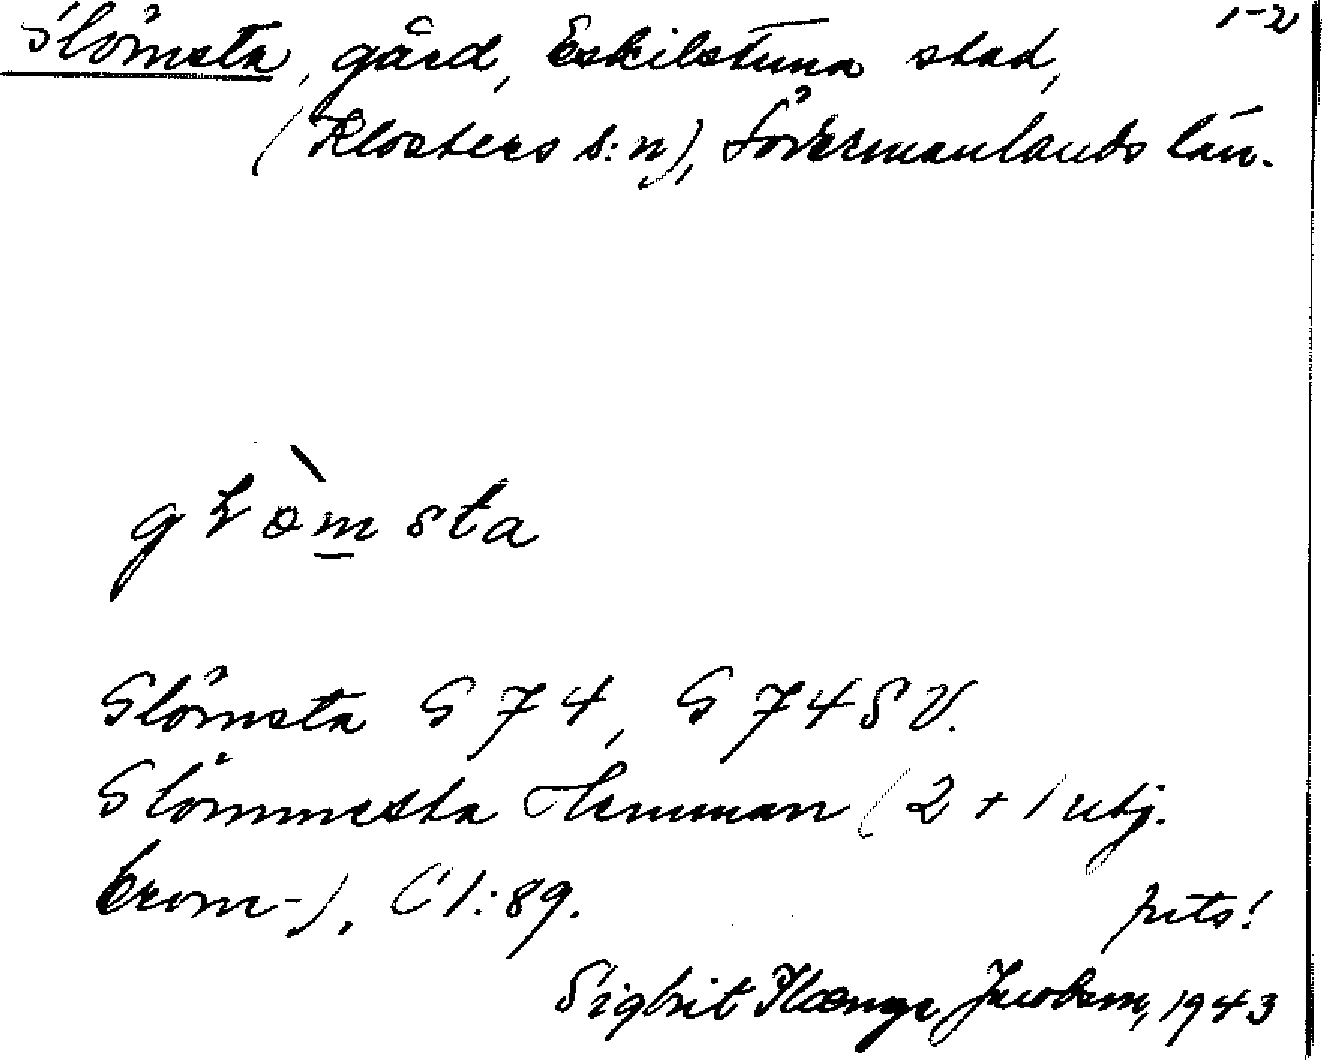 Slömsta, gård, Eskilstuna stad, 1-2
(Klosters s:n), Södermanlands län.
glòmsta
Glömsta G 74, G 74 SV.
Glömmesta Hemman (2 + 1 utj.
krom-), C 1:89.
vts!
Sigbrit Plænge Jacobson, 1943